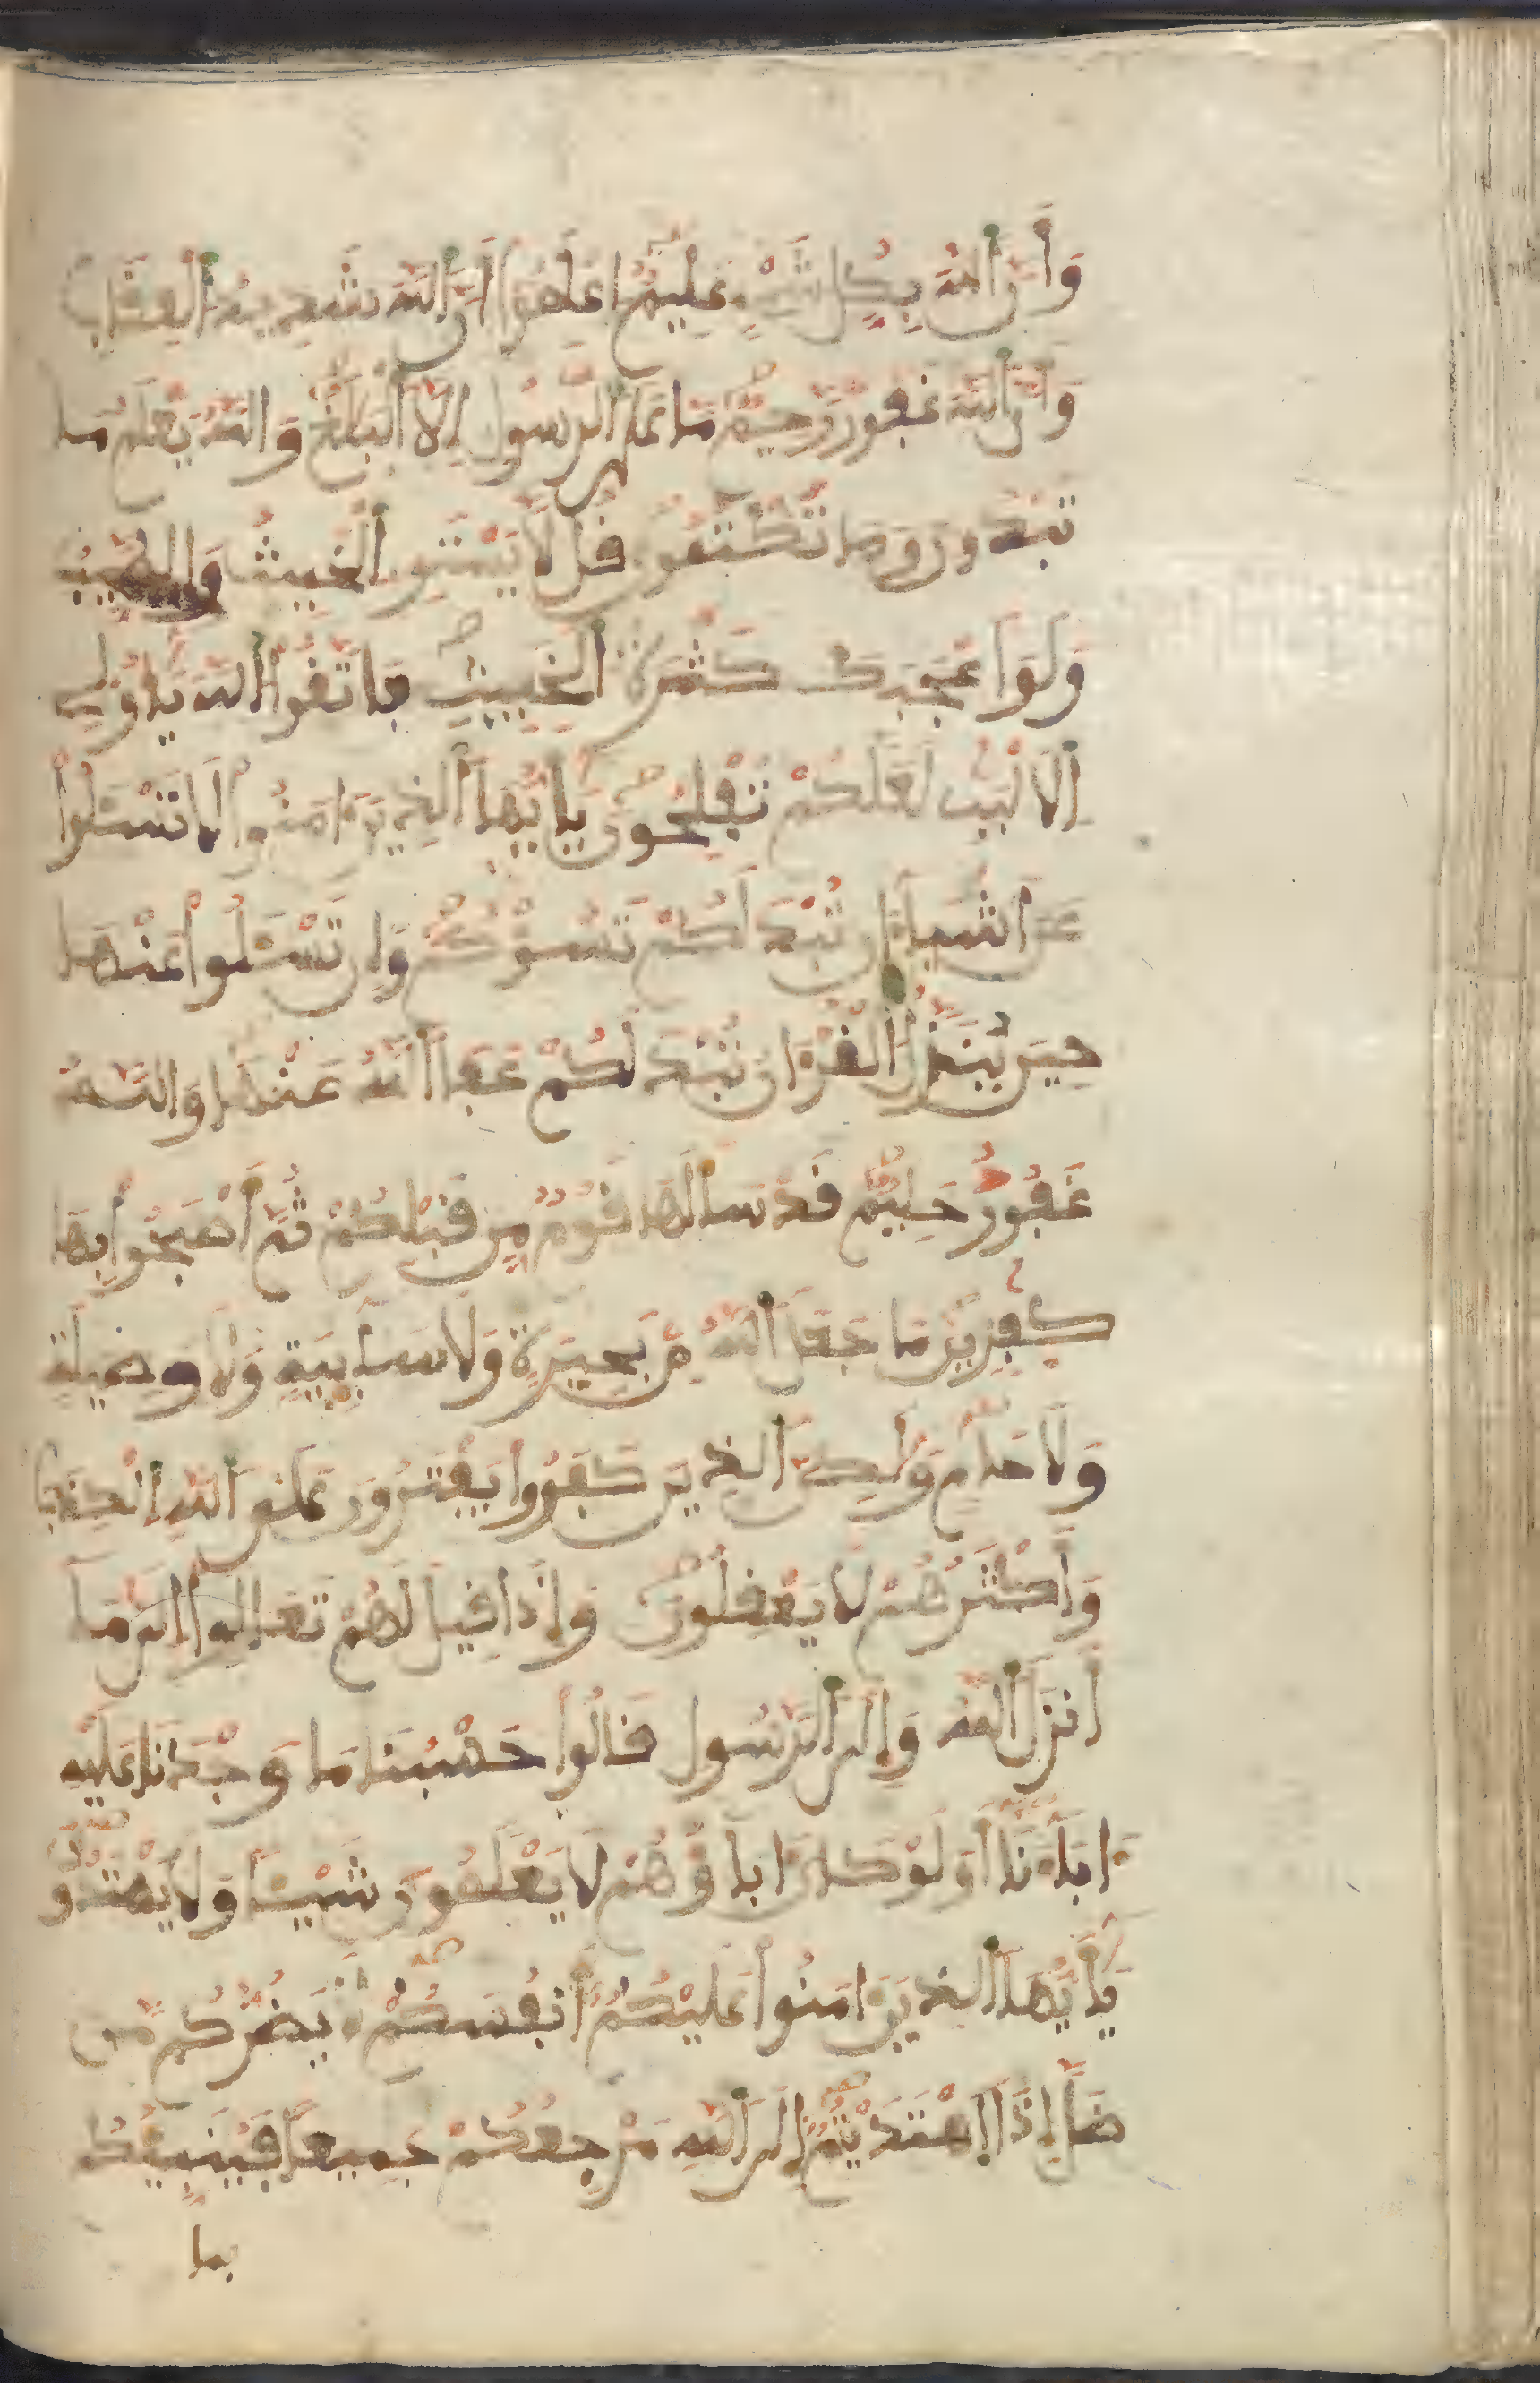 وَأَنَّ اَ۬للَّهَ بِكُلِّ شَےْءٍ عَلِيمٌ اِعْلَمُوٓاْ أَنَّ اَ۬للَّهَ شَدِيدُ اُ۬لْعِقَابِ
وَأَنَّ اَ۬للَّهَ غَفُورٞ رَّحِيمٞ مَّا عَلَي اَ۬لرَّسُولِ إِلَّا اَ۬لْبَلَٰغُ وَاللَّهُ يَعْلَمُ مَا
تُبْدُونَ وَمَا تَكْتُمُونَ قُل لَّا يَسْتَوِے اِ۬لْخَبِيثُ وَالطَّيِّبُ
وَلَوَ اَعْجَبَكَ كَثْرَةُ اُ۬لْخَبِيثِ فَاتَّقُواْ اُ۬للَّهَ يَٰٓأُوْلِے
اِ۬لَالْبَٰبِ لَعَلَّكُمْ تُفْلِحُونَ يَٰٓأَيُّهَا اَ۬لذِينَ ءَامَنُواْ لَا تَسْـَٔلُواْ
عَنَ اَشْيَآءَ ان تُبْدَ لَكُمْ تَسُؤْكُمْ وَإِن تَسْـَٔلُواْ عَنْهَا
حِينَ يُنَزَّلُ اُ۬لْقُرْءَانُ تُبْدَ لَكُمْ عَفَا اَ۬للَّهُ عَنْهَا وَاللَّهُ
غَفُورٌ حَلِيمٞ قَدْ سَأَلَهَا قَوْمٞ مِّن قَبْلِكُمْ ثُمَّ أَصْبَحُواْ بِهَا
كَٰفِرِينَ مَا جَعَلَ اَ۬للَّهُ مِنۢ بَحِيرَةٖ وَلَا سَآئِبَةٖ وَلَا وَصِيلَةٖ
وَلَا حَامٖ وَلَٰكِنَّ اَ۬لذِينَ كَفَرُواْ يَفْتَرُونَ عَلَي اَ۬للَّهِ اِ۬لْكَذِبَ
وَأَكْثَرُهُمْ لَا يَعْقِلُونَ وَإِذَا قِيلَ لَهُمْ تَعَالَوِاْ اِلَيٰ مَآ
أَنزَلَ اَ۬للَّهُ وَإِلَي اَ۬لرَّسُولِ قَالُواْ حَسْبُنَا مَا وَجَدْنَا عَلَيْهِ
ءَابَآءَنَآ أَوَلَوْ كَانَ ءَابَآؤُهُمْ لَا يَعْلَمُونَ شَيْـٔاٗ وَلَا يَهْتَدُونَ
يَٰٓأَيُّهَا اَ۬لذِينَ ءَامَنُواْ عَلَيْكُمُۥٓ أَنفُسَكُمْ لَا يَضُرُّكُم مَّن
ضَلَّ إِذَا اَ۪هْتَدَيْتُمُۥٓ إِلَي اَ۬للَّهِ مَرْجِعُكُمْ جَمِيعاٗ فَيُنَبِّئُكُم
بما